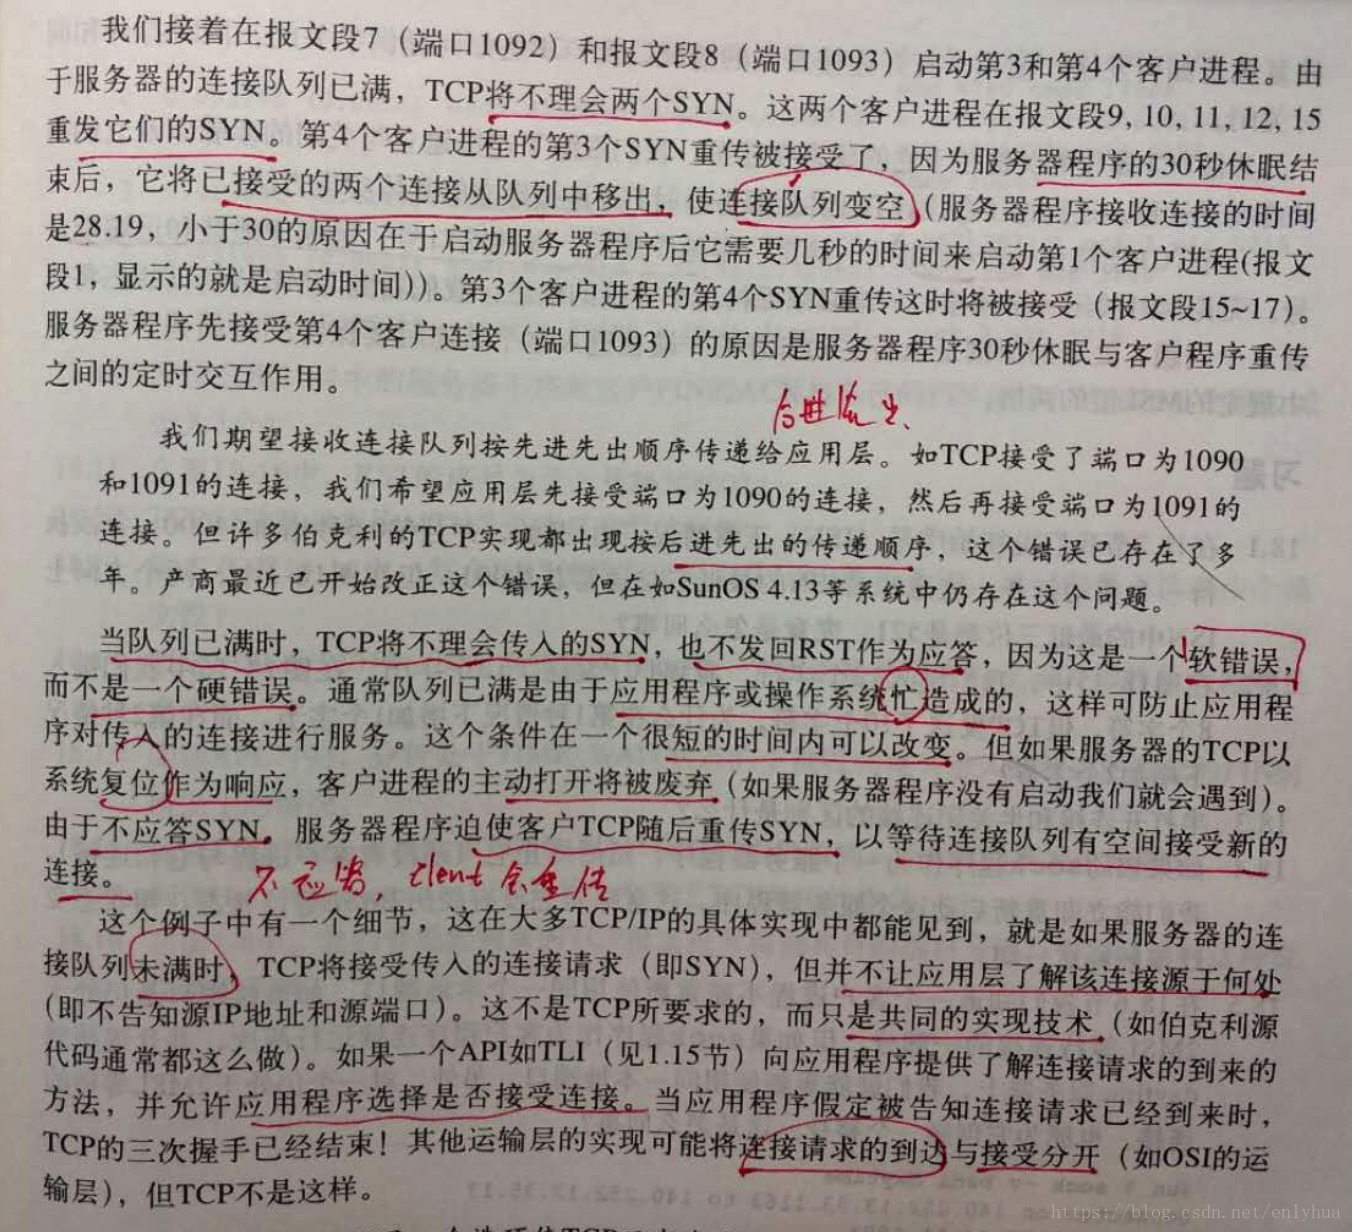 我们接着在报文段7（端口1092）和报文段8（端口1093）启动第3和第4个客户进程。由
于服务器的连接队列已满，TCP将不理会两个SYN。这两个客户进程在报文段9, 10, 11, 12, 15
重发它们的SYN。第4个客户进程的第3个SYN重传被接受了，因为服务器程序的30秒休眠结
束后，它将已接受的两个连接从队列中移出，使连接队列变空（服务器程序接收连接的时间
是28.19，小于30的原因在于启动服务器程序后它需要几秒的时间来启动第1个客户进程(报文
段1，显示的就是启动时间))。第3个客户进程的第4个SYN重传这时将被接受（报文段15~17)。
服务器程序先接受第4个客户连接（端口1093）的原因是服务器程序30秒休眠与客户程序重传
之间的定时交互作用。
后进先出、
我们期望接收连接队列按先进先出顺序传递给应用层。如TCP接受了端口为1090
和1091的连接，我们希望应用层先接受端口为1090的连接，然后再接受端口为1091的
连接。但许多伯克利的TCP实现都出现按后进先出的传递顺序，这个错误已存在了多
年。产商最近已开始改正这个错误，但在如SunOS 4.13等系统中仍存在这个问题。
当队列已满时，TCP将不理会传入的SYN，也不发回RST作为应答，因为这是一个软错误，
而不是一个硬错误。通常队列已满是由于应用程序或操作系统忙造成的，这样可防止应用程
序对传入的连接进行服务。这个条件在一个很短的时间内可以改变。但如果服务器的TCP以
系统复位作为响应，客户进程的主动打开将被废弃（如果服务器程序没有启动我们就会遇到)。
由于不应答SYN，服务器程序迫使客户TCP随后重传SYN，以等待连接队列有空间接受新的
连接。
不应答，client会重传
这个例子中有一个细节，这在大多TCP/IP的具体实现中都能见到，就是如果服务器的连
接队列未满时，TCP将接受传入的连接请求（即SYN)，但并不让应用层了解该连接源于何处
(即不告知源IP地址和源端口)。这不是TCP所要求的，而只是共同的实现技术（如伯克利源
代码通常都这么做)。如果一个API如TLI（见1.15节）向应用程序提供了解连接请求的到来的
方法，并允许应用程序选择是否接受连接。当应用程序假定被告知连接请求已经到来时，
TCP的三次握手已经结束！其他运输层的实现可能将连接请求的到达与接受分开（如OSI的运
输层)，但TCP不是这样。
https://blog.csdn.net/enlyhua